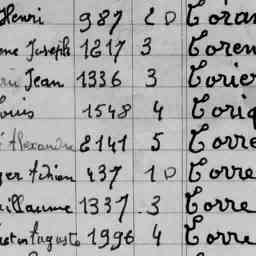 Henri 987 2 D Coran
ene Joseph 1217 3 Coren
Jean 1336 3 Corier
Louis 1548 4 Coriq
Alexandre 2141 5 Corre
437 1 D Corre
uillaume 1337 3 Corre
Auguste 1996 4 Corre